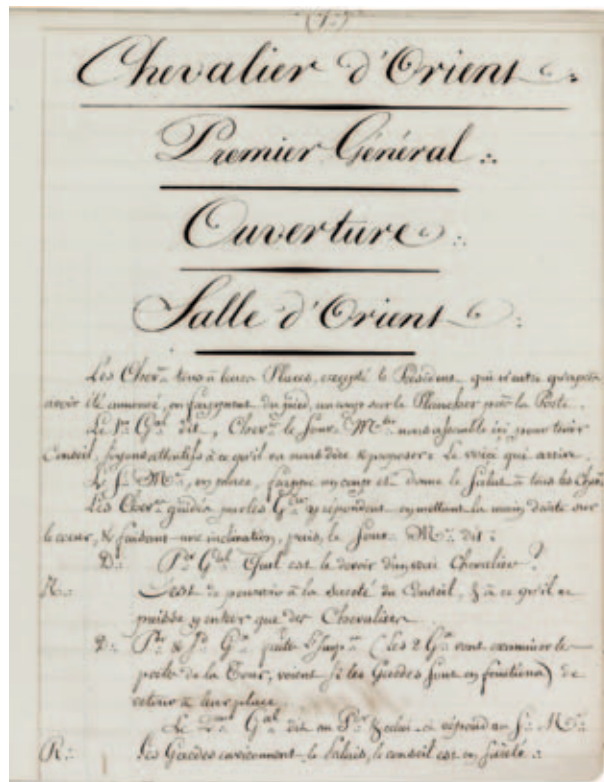 (1.)
Chevalier d'Orient ∴
Premier Général ∴
Ouverture ∴
Salle d'Orient ∴
Les Cher.rs tous à leurs Places, excepté le Président qui n'entre qu'après
avoir été annoncé, en frappant du pied, un coup sur le Plancher près la Porte.
Le 1.er G.al dit, Cher.rs le Souv. M.tre nous assemble ici pour tenir
Conseil, soyons attentifs à ce qu'il va nous dire & proposer: Le voici qui arrive.
Le S. M.tre, en place, frappe un coup et donne le Salut à tous les Cher.
Les Cher.rs guidés par les G.aux y répondent en mettant la main droite sur
le cœur, & faisant une inclination, puis, le Souv. M.tre dit:
D: P.er G.al Quel est le devoir d'un vrai Chevalier?
R: C'est de pourvoir à la sureté du Conseil, & à ce qu'il ne
puisse y entrer que des Chevaliers.
D: P.er & S.d G.aux faites (les 2 G.aux vont examiner la
porte de la Tour, voient si les Gardes sont en fonctions) de
retour à leur place,
Le G.al dit au P.er & celui-ci répond au S. M.tre
R: Les Gardes environnent le Palais, le conseil est en sûreté ∴